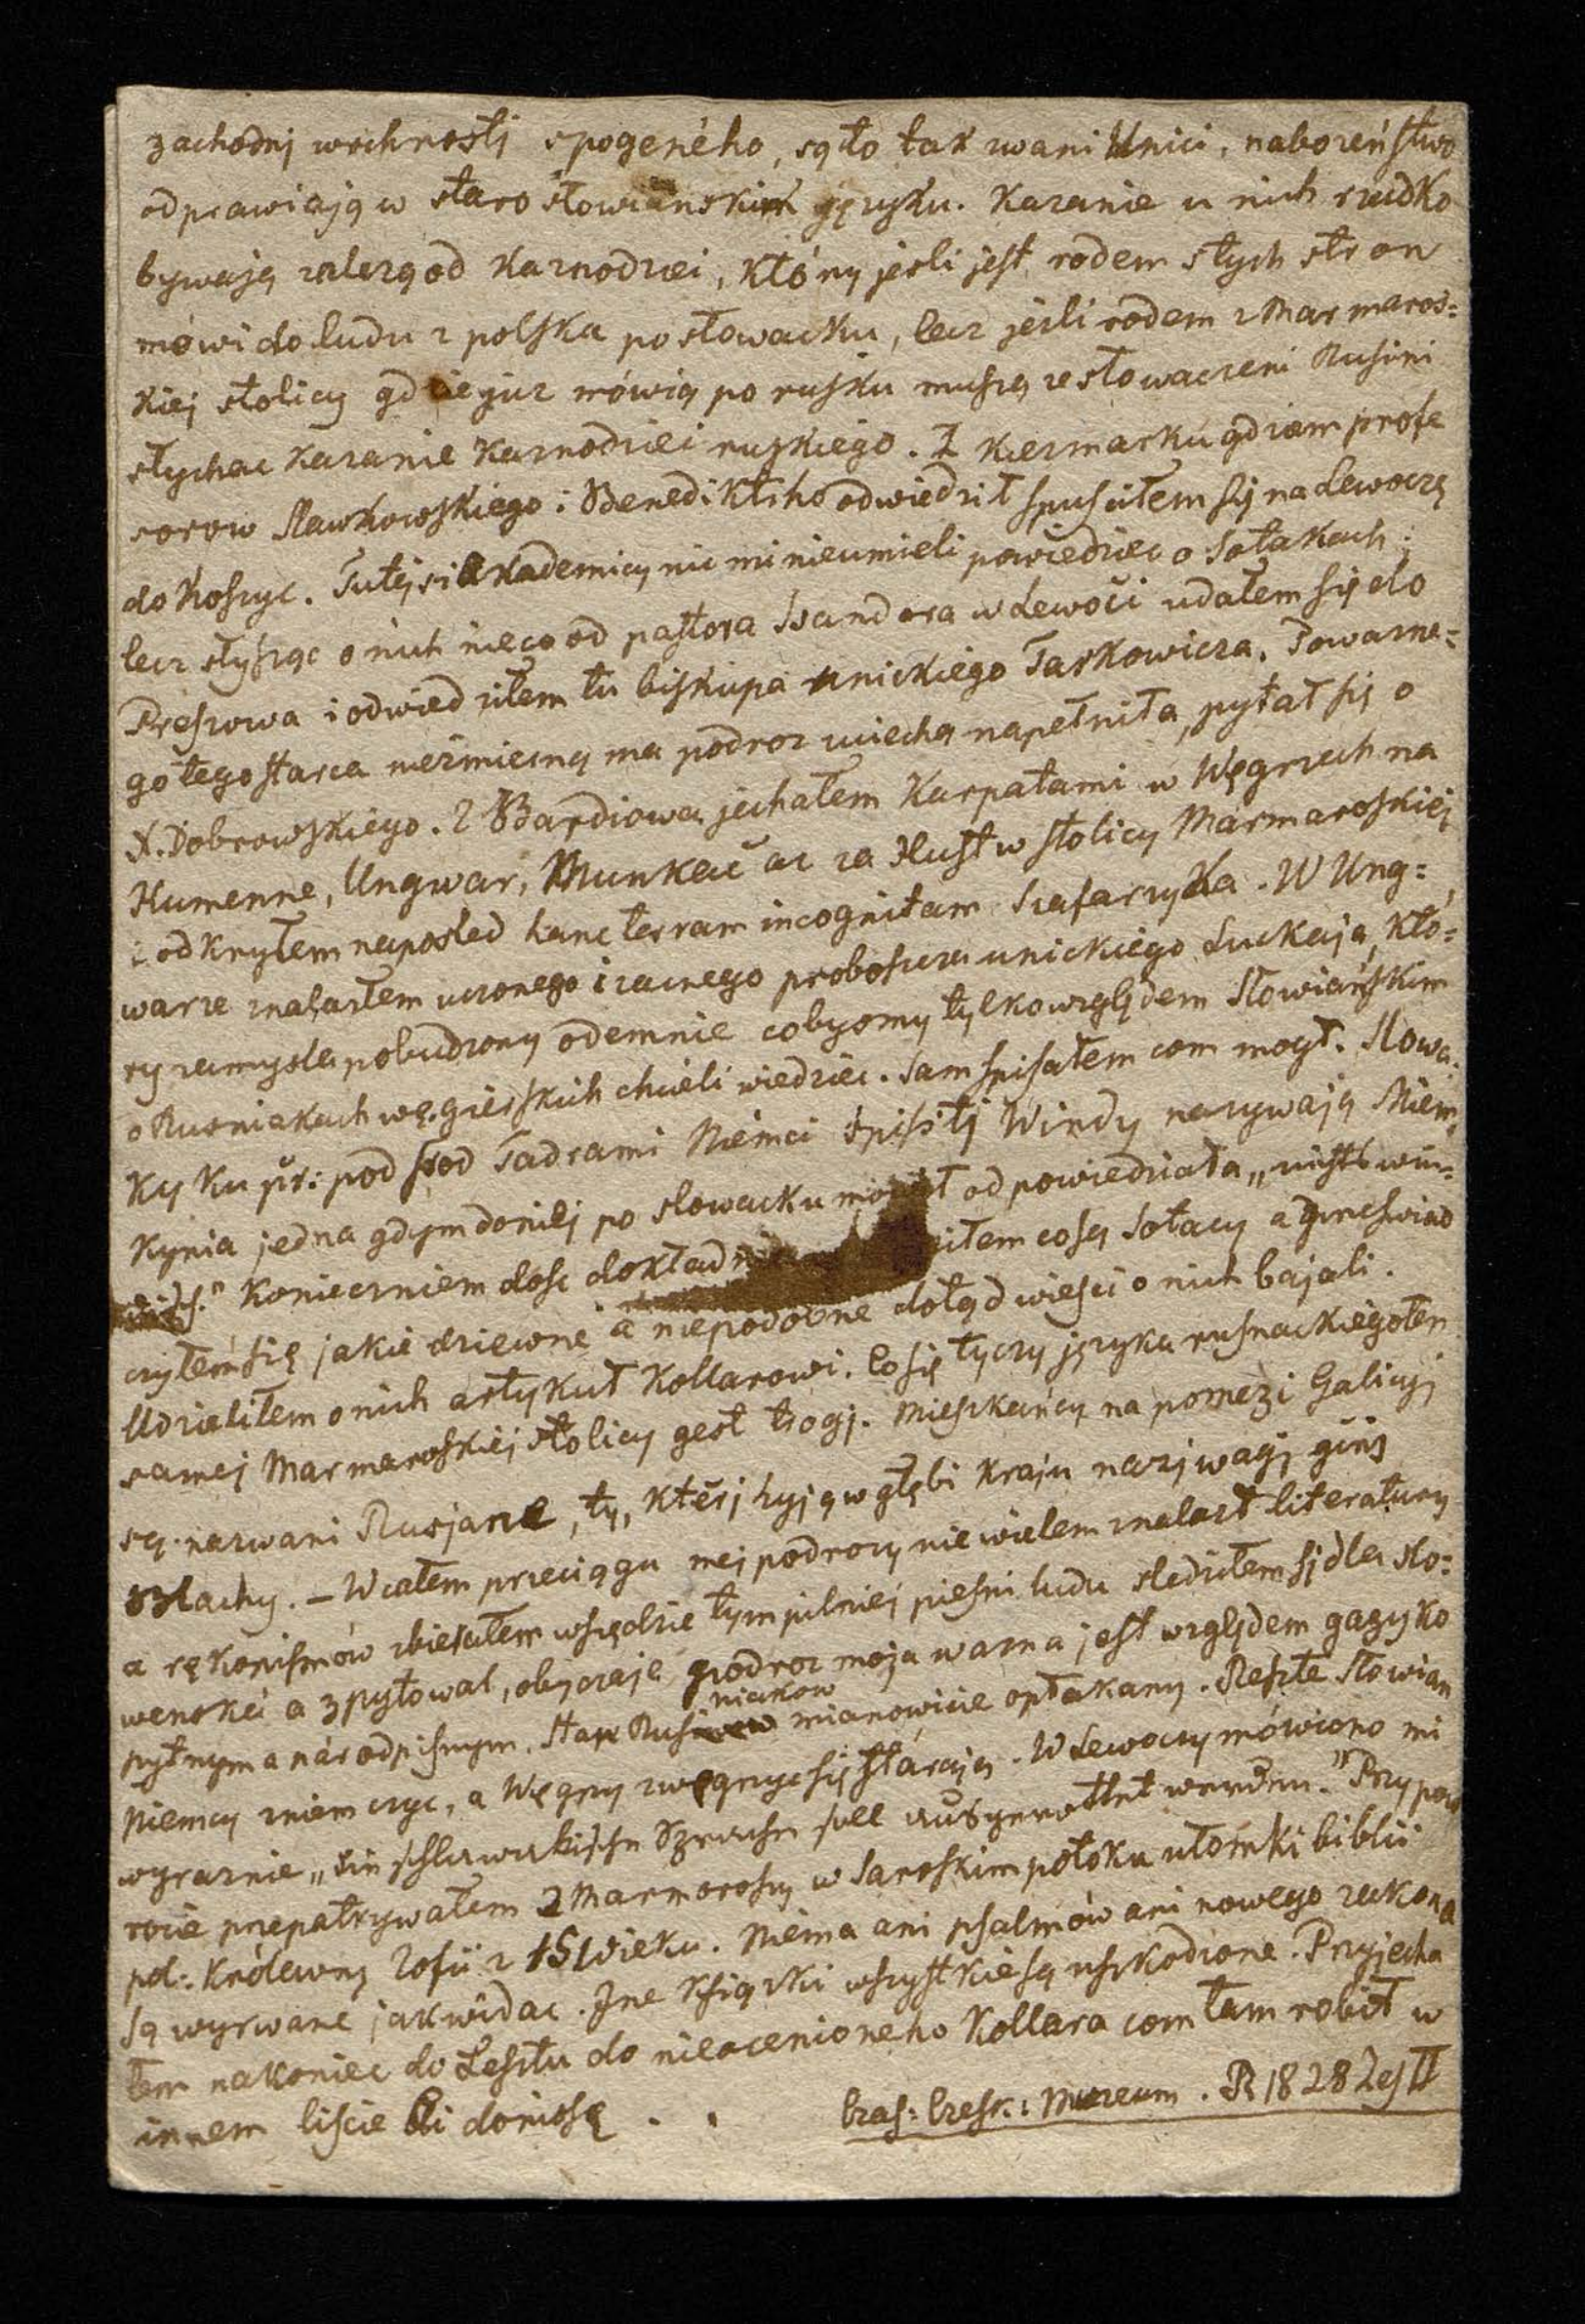 zachodnj wrchnosti spogeného, sąto tak zwani Unici, naboreństwo
odprawiają w staro słowiańskim języku. Kazanie u nich rzedko
bywają zależą od Kaznodziei, który jesli jest rodem stych stron
mówi do ludu z polska po słowacku, lecz jesli rodem z Marmaros=
kiej stolicy gdzie juz mówią po rusku muszą zesłowaczeni Rusini
słychac kazanie Kaznodziei ruskiego. Z Kezmarku gdziem profe
sorow Sławkowskiego i Benediktiho odwiedził spusciłem się na Lewoczę
do Koszyc. Tutejsi akademicy nic mi nieumieli powiedziec o Sotakach;
lecz słysząc o nich nieco od pastora Isandora w Lewoči udałem się do
Preszowa i odwiedziłem tu biskupa unickiego Tarkowicza. Powazne=
go tego starca niezmierną ma podroz uciechą napełniła, pytał się o
X. Dobrowskiego. Z Bardiowa jechałem Karpatami w Węgrzech na
Humenne, Ungwar, Munkač az za Hust w stolicy Marmaroskiej
i odkryłem naposled hanc terram incognitam Szafarzyka. W Ung=
warze znalazłem uczonego i zacnego proboszcza unickiego Luckaja, któ=
ry zamysla pobudzony odemnie cobysmy tylko względem Słowiańskim
o Rusniakach węgierskich chcieli wiedziec. Sam spisałem com mogł. Slowa.
Ky ku př: pod srod Tadrami Niemci spišstj Windy nazywają Niem,
kynia jedna gdym doniej po slowacku mowił odpowiedziała „nichts win-
disch." Konieczniem dosc dokładn iłem co są Sotacy a przeswiad
czyłem się jakie dziewne a niepodobne dotąd wiesci o nich bajali.
Udzieliłem o nich artykuł Kollarowi. Co się tyczy języka rusnackiego ten
samej Marmaroskiej stolicy gest trogj. Mieszkańcy na pomezi Galicyj
są nazwani Rusjane, ty, kteřj žyją w głębi kraju nazjwagj ginj
Blachy. – W całem przeciągu mej podrozy nie wielem znalazł literatury
a rękopismów zbierałem wszędzie tym pilniej piesni ludu sledziłem sj dla slo=
wenské a zpytowal, obyczaje, podroz moja wazna jest względem gazyko
pytnym a národpisnym. Stan Rusiniakow mianowicie opłakany. Reszte Słowian
Niemcy zniemczyc, a Węgry zwęgrzyc się starają. W Lewoczy mówiono mi
wyraznie „die schlawakische Sprache soll ausgerottet werden." Przy pow
rocie przepatrywałem z Marmorosy w Saroskim potoku ułomki biblii
pol: królewny Zofii z 15 wieku. Niema ani psalmów ani nowego zakona
są wyrwane jak widac. Jne Książki wszystkie są uszkodzone. Przyjecha
łem nakoniec do Pesztu do nieocenioneho Kollara com tam robił w
innem liscie Ci doniosę . .
Czas: Czesk: Muzeum. R 1828 Zes II